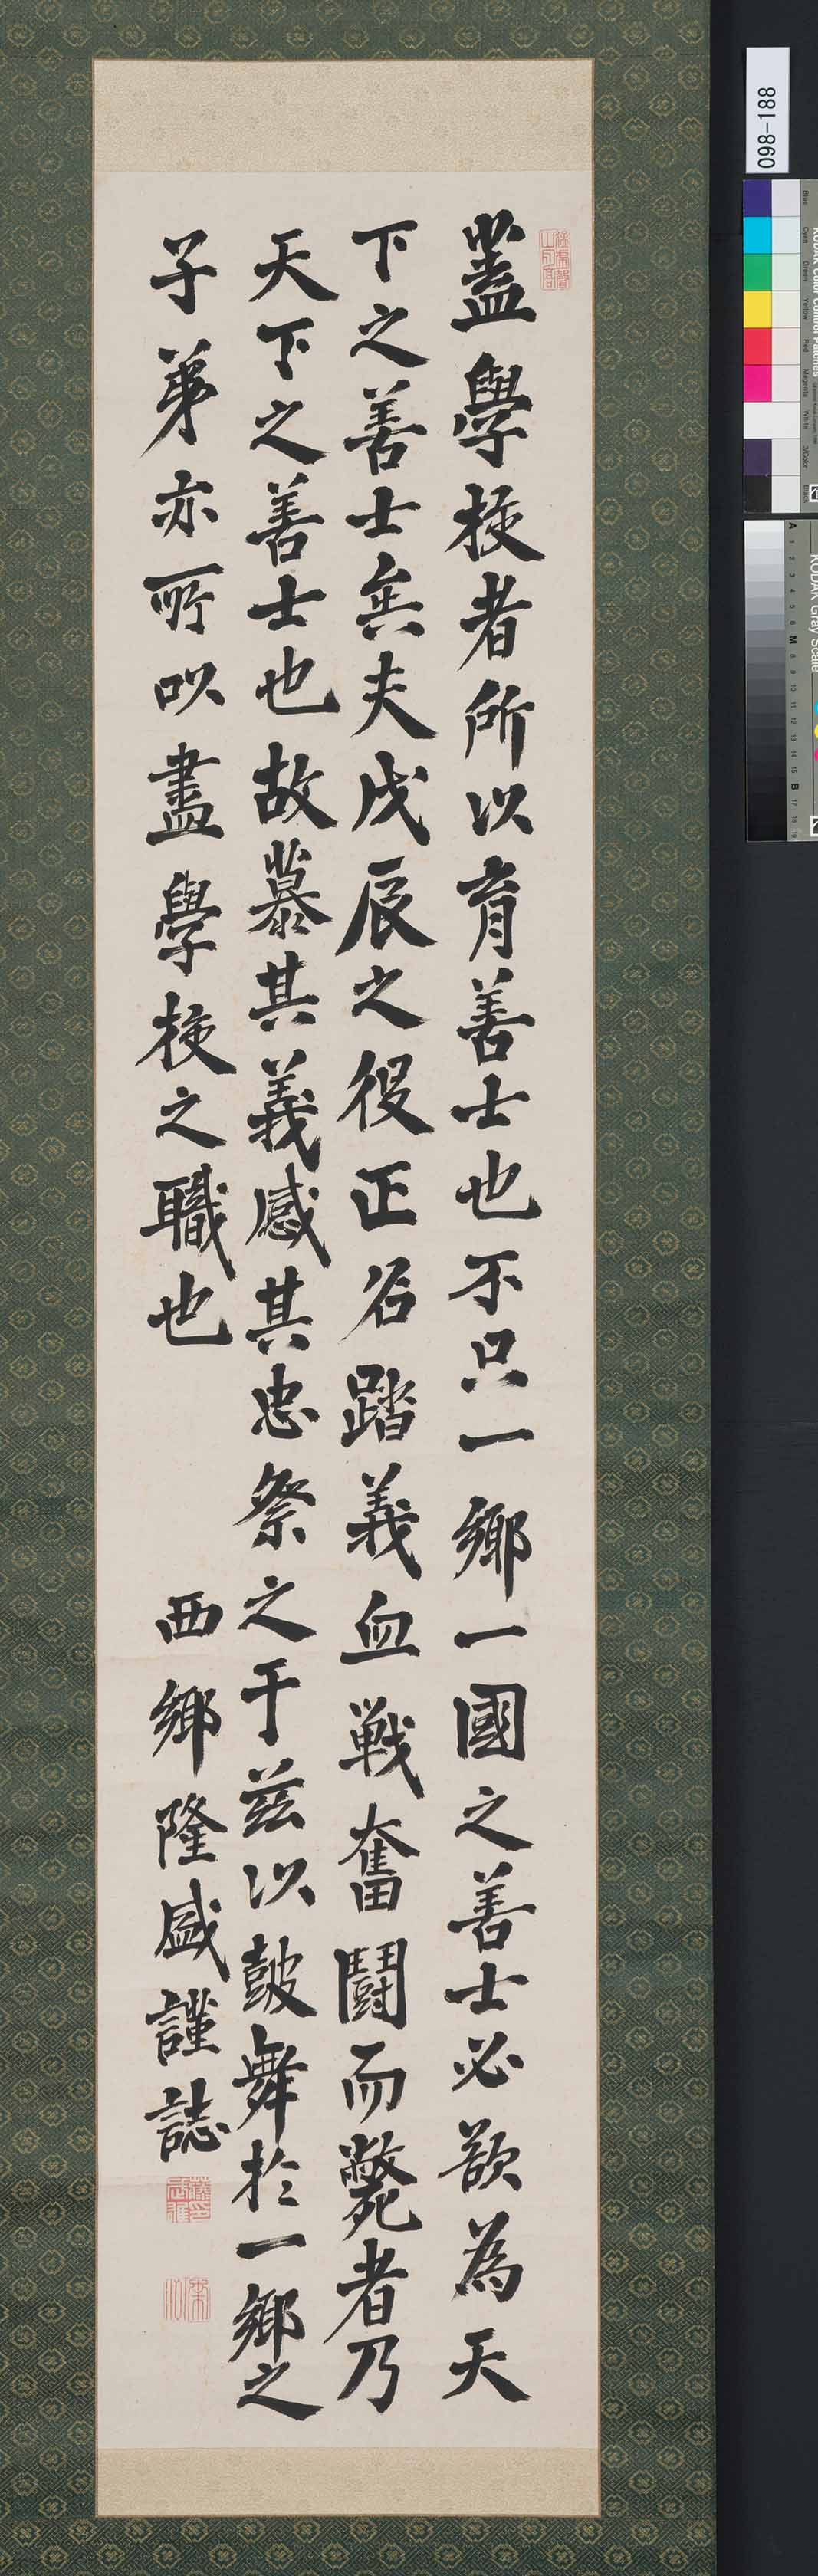 蓋學校者所以育善士也不只一鄉一國之善士必欲為天
下之善士矣夫戊辰之役正名踏義血戦奮鬪而斃者乃
天下之善士也故慕其義感其忠祭之于茲以鼓舞於一鄉之
子弟亦所以盡學校之職也
西鄉隆盛謹誌
098-188
KODAK Color Control Patches
Blue
Cyan
Green
Yellow
Red
Magenta
White
3/Color
Black
KODAK Gray Scale
A 1 2 3 4 5 6 M 8 9 10 11 12 13 14 15 B 17 18 19